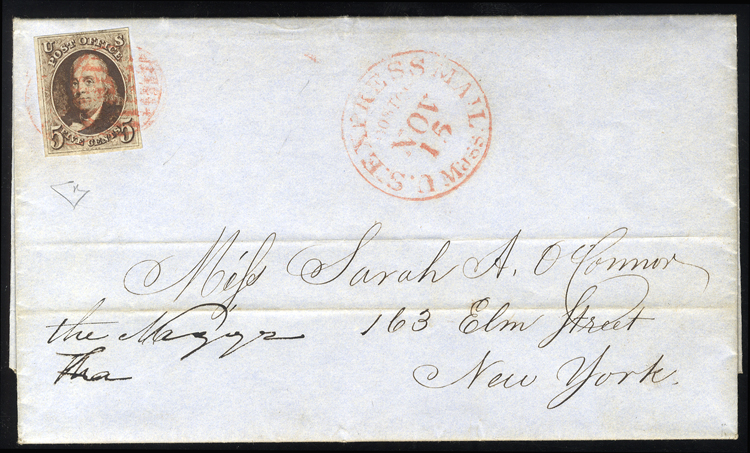 U S
POST OFFICE
5 FIVE CENTS 5
U.S. EXPRESS MAIL
NOV
Miss Sarah A. O'Connor
163 Elm Street
New York.
the